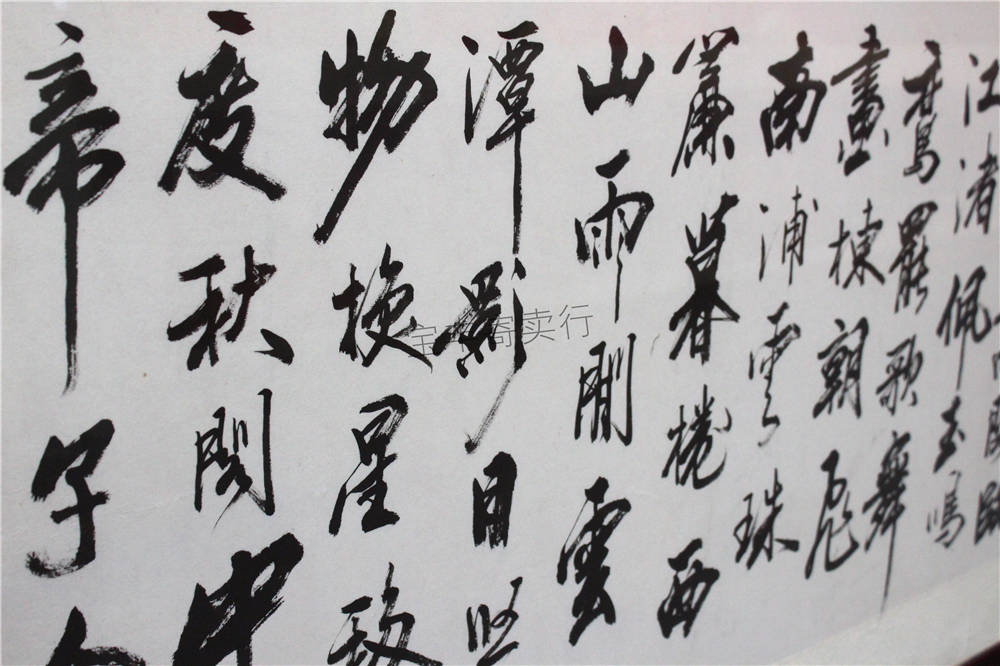 閣臨
江渚佩玉鳴
鸞罷歌舞
畫棟朝飛
南浦雲珠
簾暮捲西
山雨閒雲
潭影日
物換星移
度秋閣中
帝子
宝 阁卖行